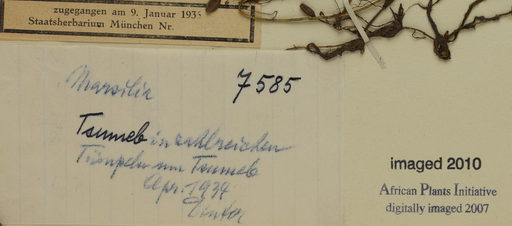 zugegangen am 9. Januar 193
Staatsherbarium München Nr.
Marsilia 7585
Tsumeb in zahlreichen
Tümpeln um Tsumeb
Apr. 1934
Dinter
imaged 2010
African Plants Initiative
digitally imaged 2007